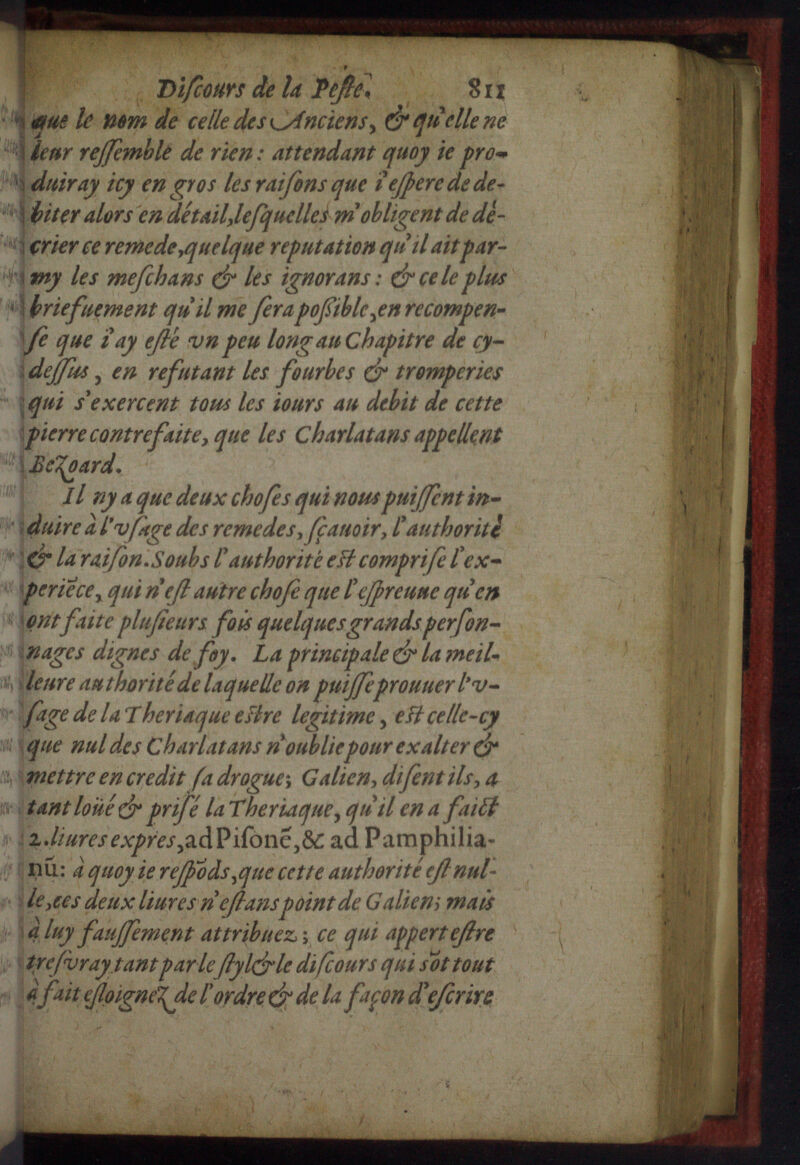 Discours de la Peste. 811
que le nom de celle des Anciens, & qu'elle ne
leur ressemble de rien : attendant quoy ie pro-
duiray icy en gros les raisons que i'espere de de-
biter alors en détail, lesquelles m'obligent de dé-
crier ce remede, quelque reputation qu'il ait par-
my les meschans & les ignorans : & ce le plus
briefuement qu'il me sera possible, en recompen-
se que i'ay esté vn peu long au Chapitre de cy-
dessus, en refutant les fourbes & tromperies
qui s'exercent tous les iours au debit de cette
pierre contrefaite, que les Charlatans appellent
Bezoard.
Il ny a que deux choses qui nous puissent in-
duire à l'vsage des remedes, sçauoir, l'authorité
& la raison. Soubs l'authorité est comprise l'ex-
periẽce, qui n'est autre chose que l'espreuue qu'en
ont faite plusieurs fois quelques grands person-
nages dignes de foy. La principale & la meil-
leure authorité de laquelle on puisse prouuer l'v-
sage de la Theriaque estre legitime, est celle-cy
que nul des Charlatans n'oublie pour exalter &
mettre en credit sa drogue; Galien, disent ils, a
tant loüé & prisé la Theriaque, qu'il en a faict
2. liures expres, ad Pisonẽ, & ad Pamphilia-
nũ: à quoy ie respõds, que cette authorité est nul-
le, ces deux liures n'estans point de Galien; mais
à luy faussement attribuez; ce qui appert estre
tres vray tant par le styl & le discours qui sõt tout
à fait esloignez de l'ordre & de la façon d'escrire